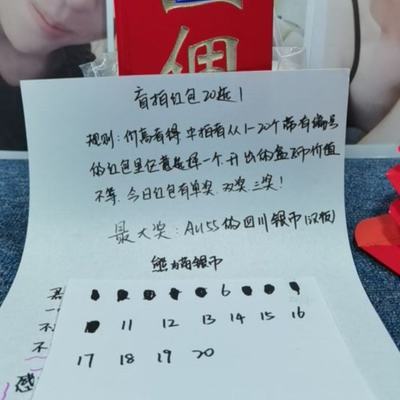 盲拍红包20选1
规则:价高者得 中拍者从1-20个带有编号
的红包里任意选择一个,开出的盒子币价值
不等.今日红包有单奖.双奖.三奖!
最大奖:AU55的四川银币(汉板)
熊猫银币
6
11 12 13 14 15 16
17 18 19 20
不
不
感